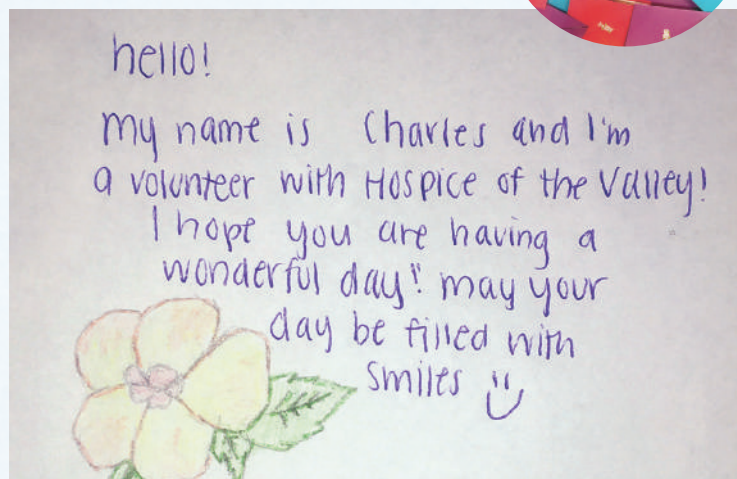 hello!
my name is Charles and I'm
a volunteer with Hospice of the Valley!
I hope you are having a
wonderful day!! may your
day be filled with
smiles